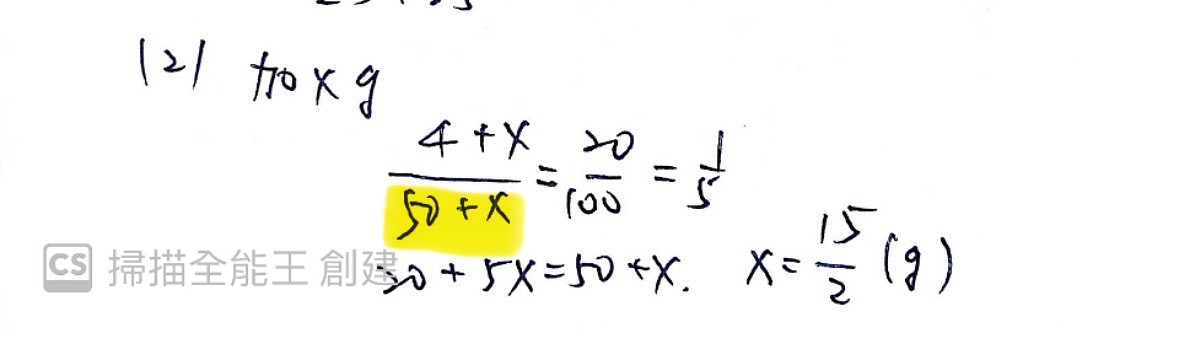 (2) 加 x g
4 + x / 50 + x = 20 / 100 = 1 / 5
20 + 5x = 50 + x. x = 15 / 2 (g)
CS 掃描全能王 創建